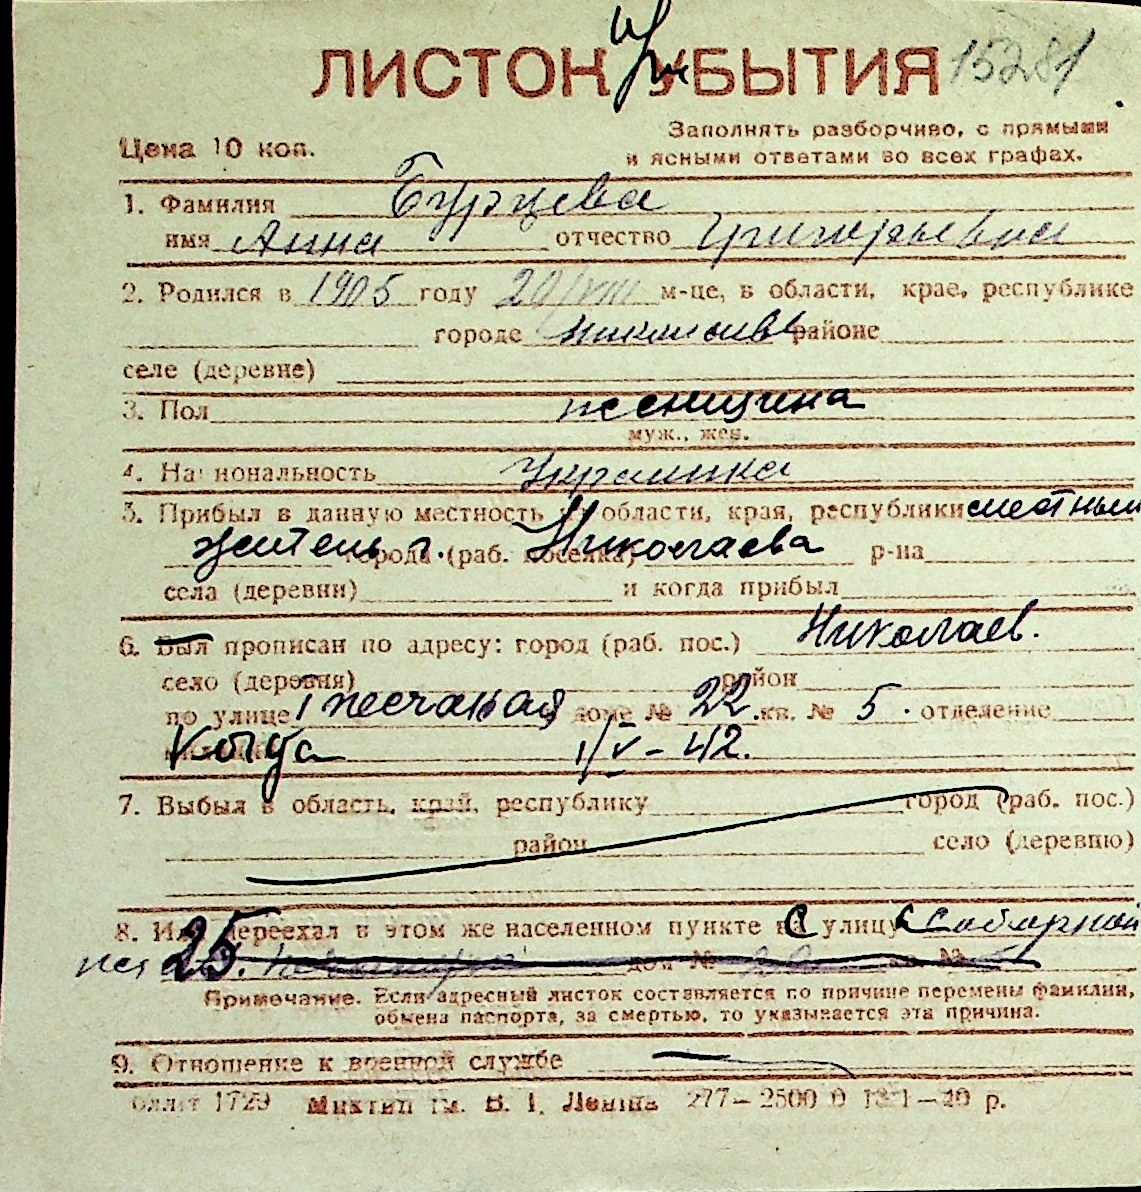 ЛИСТОК УБЫТИЯ 15281
Цена 10 коп.
Заполнять разборчиво, с прямыми
и ясными ответами во всех графах.
1. Фамилия Бурцева
имя Анна отчество Григорьевна
2. Родился в 1905 году 20/VIII м-це, в области, крае, республике
городе Николаев районе
селе (деревне)
3. Пол женщина
муж., жен.
4. Национальность Украинка
5. Прибыл в данную местность из области, края, республики местный
житель г. города (раб. поселка) Николаева р-на
села (деревни) и когда прибыл
6. Был прописан по адресу: город (раб. пос.) Николаев.
село (деревня) район
по улице I песчаная доме № 22. кв. № 5. отделение
Когда 1/V-42.
7. Выбыл в область, край, республику город (раб. пос.)
район село (деревню)
8. Или переехал в этом же населенном пункте с улицы Соборной
25. дом № кв. №
Примечание. Если адресный листок составляется по причине перемены фамилии,
обмена паспорта, за смертью, то указывается эта причина.
9. Отношение к военной службе
1729 им. В. І. Леніна 277—2500 0